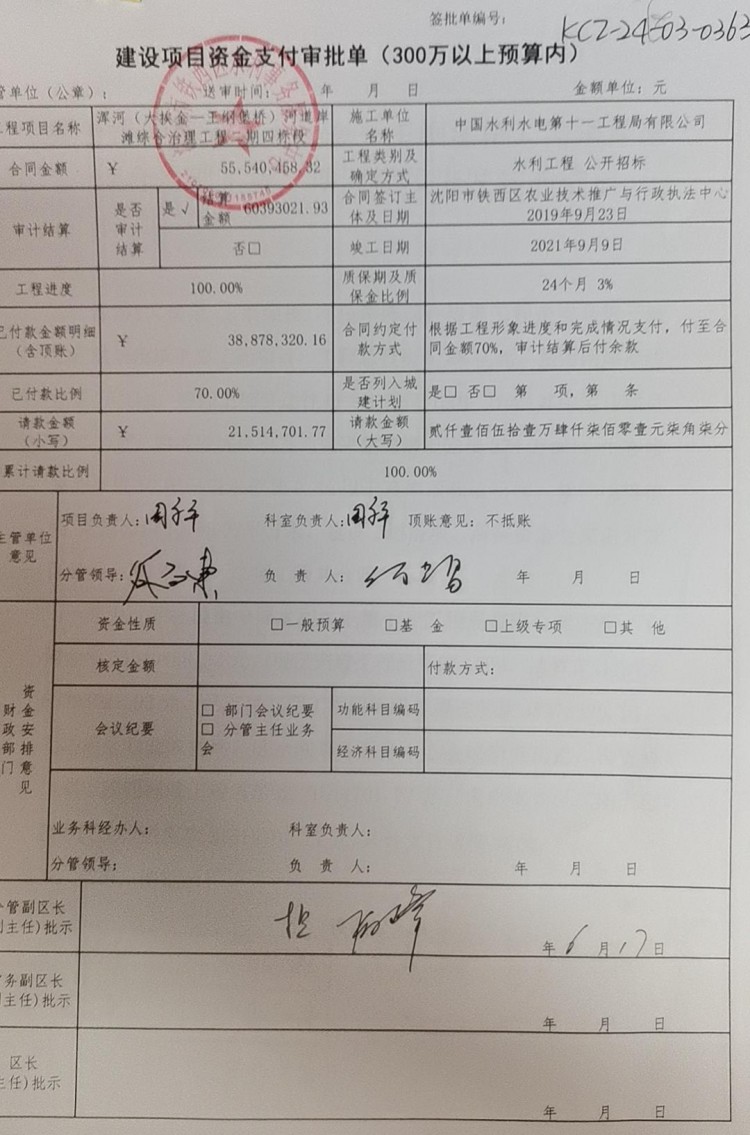 签批单编号: KCZ-24-03-0363
建设项目资金支付审批单（300万以上预算内）
管单位（公章）: 送审时间: 年 月 日 金额单位: 元
工程项目名称 浑河（大挨金—王纲堡桥）河道岸滩综合治理工程二期四标段 施工单位名称 中国水利水电第十一工程局有限公司
合同金额 ¥ 55,540,458.32 工程类别及确定方式 水利工程 公开招标
审计结算 是否审计结算 是√ 结算金额 60393021.93 合同签订主体及日期 沈阳市铁西区农业技术推广与行政执法中心 2019年9月23日
否□ 竣工日期 2021年9月9日
工程进度 100.00% 质保期及质保金比例 24个月 3%
已付款金额明细（含顶账） ¥ 38,878,320.16 合同约定付款方式 根据工程形象进度和完成情况支付，付至合同金额70%，审计结算后付余款
已付款比例 70.00% 是否列入城建计划 是□ 否□ 第 项，第 条
请款金额（小写） ¥ 21,514,701.77 请款金额（大写） 贰仟壹佰伍拾壹万肆仟柒佰零壹元柒角柒分
累计请款比例 100.00%
主管单位意见 项目负责人: 科室负责人: 顶账意见: 不抵账
分管领导: 负 责 人: 年 月 日
资金安排意见
财政部门
资金性质 □一般预算 □基 金 □上级专项 □其 他
核定金额 付款方式:
会议纪要 □ 部门会议纪要 功能科目编码
□ 分管主任业务会 经济科目编码
业务科经办人: 科室负责人:
分管领导: 负 责 人: 年 月 日
分管副区长（副主任）批示 年 6 月 17 日
务副区长（副主任）批示 年 月 日
区长（主任）批示 年 月 日